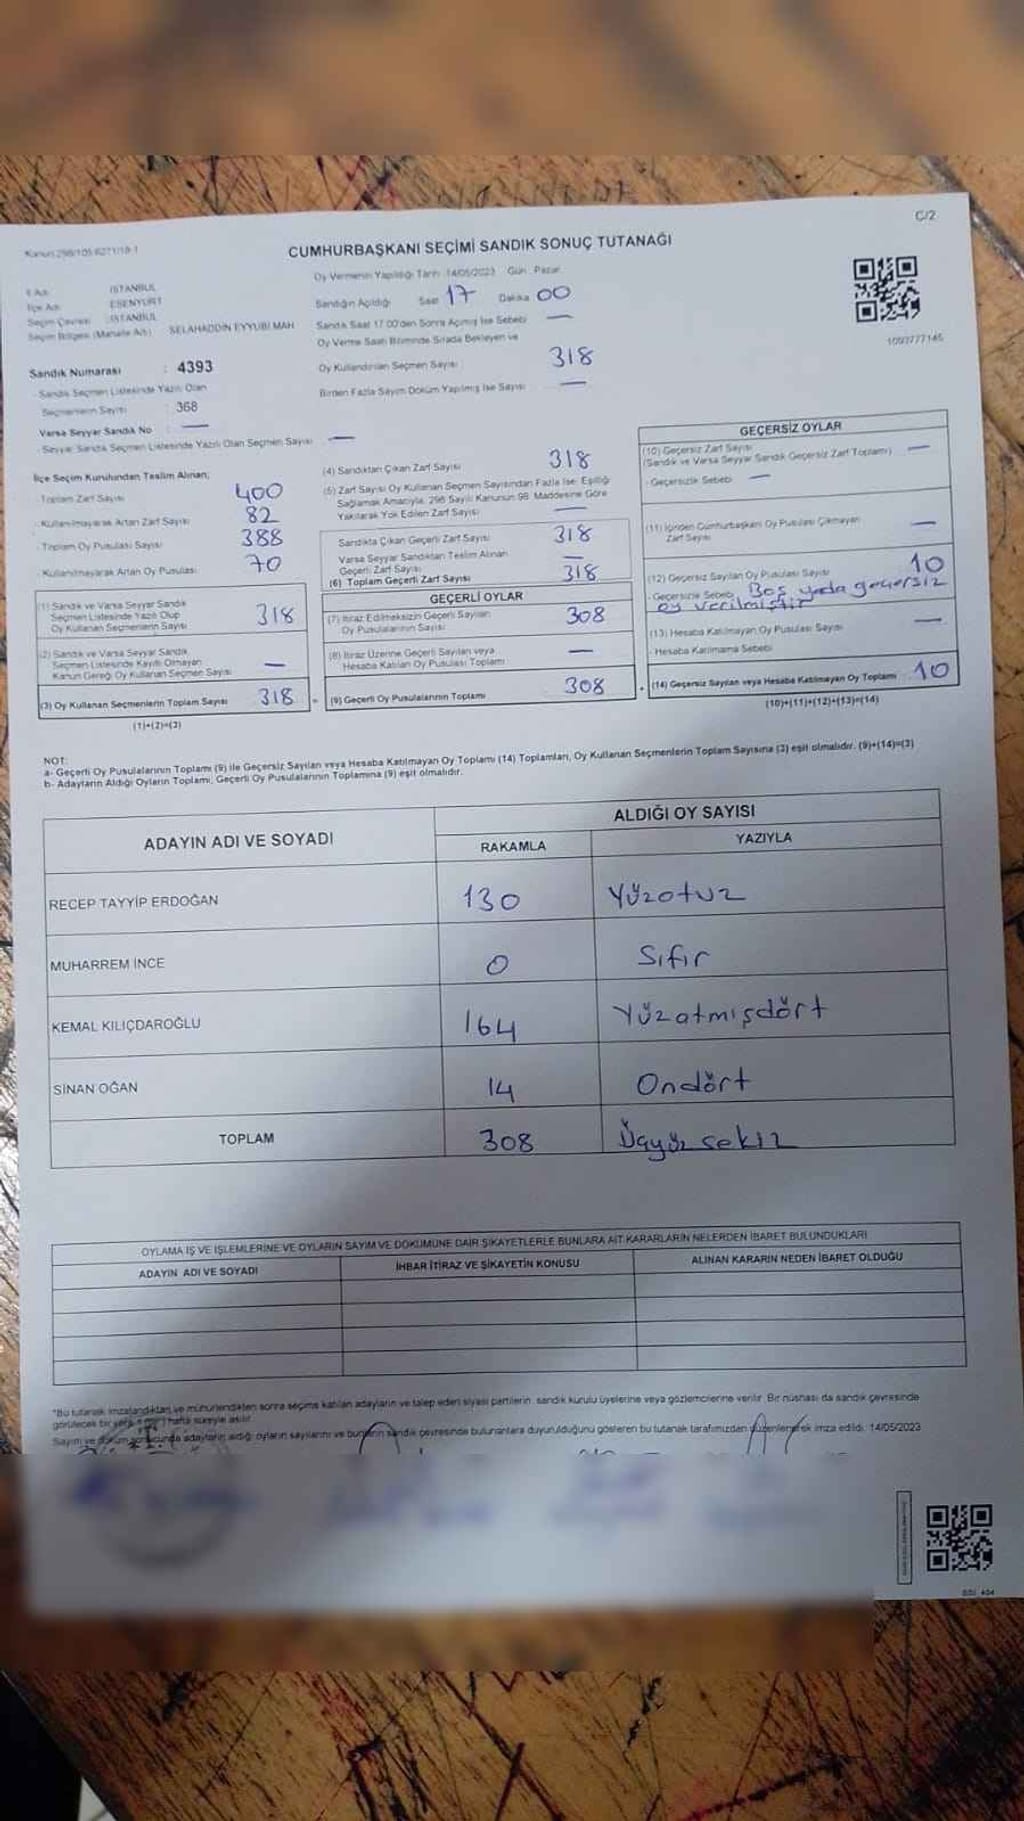 C/2
Kanun:298/105 6271/19-1
CUMHURBAŞKANI SEÇİMİ SANDIK SONUÇ TUTANAĞI
İl Adı : İSTANBUL
İlçe Adı : ESENYURT
Seçim Çevresi : İSTANBUL
Seçim Bölgesi (Mahalle Adı) : SELAHADDİN EYYUBİ MAH
Sandık Numarası : 4393
Sandık Seçmen Listesinde Yazılı Olan
Seçmenlerin Sayısı : 368
Varsa Seyyar Sandık No : —
Seyyar Sandık Seçmen Listesinde Yazılı Olan Seçmen Sayısı —
Oy Vermenin Yapıldığı Tarih :14/05/2023 Gün : Pazar
Sandığın Açıldığı Saat 17 Dakika 00
Sandık Saat 17.00'den Sonra Açılmış İse Sebebi —
Oy Verme Saati Bitiminde Sırada Bekleyen ve
Oy Kullandırılan Seçmen Sayısı 318
Birden Fazla Sayım Döküm Yapılmış İse Sayısı —
1093777145
İlçe Seçim Kurulundan Teslim Alınan;
- Toplam Zarf Sayısı 400
- Kullanılmayarak Artan Zarf Sayısı 82
- Toplam Oy Pusulası Sayısı 388
- Kullanılmayarak Artan Oy Pusulası 70
(1) Sandık ve Varsa Seyyar Sandık
Seçmen Listesinde Yazılı Olup
Oy Kullanan Seçmenlerin Sayısı 318
(2) Sandık ve Varsa Seyyar Sandık
Seçmen Listesinde Kayıtlı Olmayan
Kanun Gereği Oy Kullanan Seçmen Sayısı —
(3) Oy Kullanan Seçmenlerin Toplam Sayısı 318
(1)+(2)=(3)
(4) Sandıktan Çıkan Zarf Sayısı 318
(5) Zarf Sayısı Oy Kullanan Seçmen Sayısından Fazla İse; Eşitliği
Sağlamak Amacıyla, 298 Sayılı Kanunun 98. Maddesine Göre
Yakılarak Yok Edilen Zarf Sayısı —
Sandıkta Çıkan Geçerli Zarf Sayısı 318
Varsa Seyyar Sandıktan Teslim Alınan
Geçerli Zarf Sayısı —
(6) Toplam Geçerli Zarf Sayısı 318
GEÇERLİ OYLAR
(7) İtiraz Edilmeksizin Geçerli Sayılan
Oy Pusulalarının Sayısı 308
(8) İtiraz Üzerine Geçerli Sayılan veya
Hesaba Katılan Oy Pusulası Toplamı —
(9) Geçerli Oy Pusulalarının Toplamı 308
GEÇERSİZ OYLAR
(10) Geçersiz Zarf Sayısı
(Sandık ve Varsa Seyyar Sandık Geçersiz Zarf Toplamı) —
- Geçersizlik Sebebi —
(11) İçinden Cumhurbaşkanı Oy Pusulası Çıkmayan
Zarf Sayısı —
(12) Geçersiz Sayılan Oy Pusulası Sayısı 10
- Geçersizlik Sebebi Boş yada geçersiz
oy verilmiştir
(13) Hesaba Katılmayan Oy Pusulası Sayısı —
- Hesaba Katılmama Sebebi
(14) Geçersiz Sayılan veya Hesaba Katılmayan Oy Toplamı 10
(10)+(11)+(12)+(13)=(14)
NOT:
a- Geçerli Oy Pusulalarının Toplamı (9) ile Geçersiz Sayılan veya Hesaba Katılmayan Oy Toplamı (14) Toplamları, Oy Kullanan Seçmenlerin Toplam Sayısına (3) eşit olmalıdır. (9)+(14)=(3)
b- Adayların Aldığı Oyların Toplamı; Geçerli Oy Pusulalarının Toplamına (9) eşit olmalıdır.
ADAYIN ADI VE SOYADI
ALDIĞI OY SAYISI
RAKAMLA YAZIYLA
RECEP TAYYİP ERDOĞAN 130 Yüzotuz
MUHARREM İNCE 0 Sıfır
KEMAL KILIÇDAROĞLU 164 Yüzatmışdört
SİNAN OĞAN 14 Ondört
TOPLAM 308 Üçyüz sekiz
OYLAMA İŞ VE İŞLEMLERİNE VE OYLARIN SAYIM VE DÖKÜMÜNE DAİR ŞİKAYETLERLE BUNLARA AİT KARARLARIN NELERDEN İBARET BULUNDUKLARI
ADAYIN ADI VE SOYADI İHBAR İTİRAZ VE ŞİKAYETİN KONUSU ALINAN KARARIN NEDEN İBARET OLDUĞU
"Bu tutanak imzalandıktan ve mühürlendikten sonra seçime katılan adayların ve talep eden siyasi partilerin, sandık kurulu üyelerine veya gözlemcilerine verilir. Bir nüshası da sandık çevresinde
görülecek bir yere 1 (bir) hafta süreyle asılır.
Sayım ve döküm sonucunda adayların aldığı oyların sayılarını ve bunların sandık çevresinde bulunanlara duyurulduğunu gösteren bu tutanak tarafımızdan düzenlenerek imza edildi. 14/05/2023